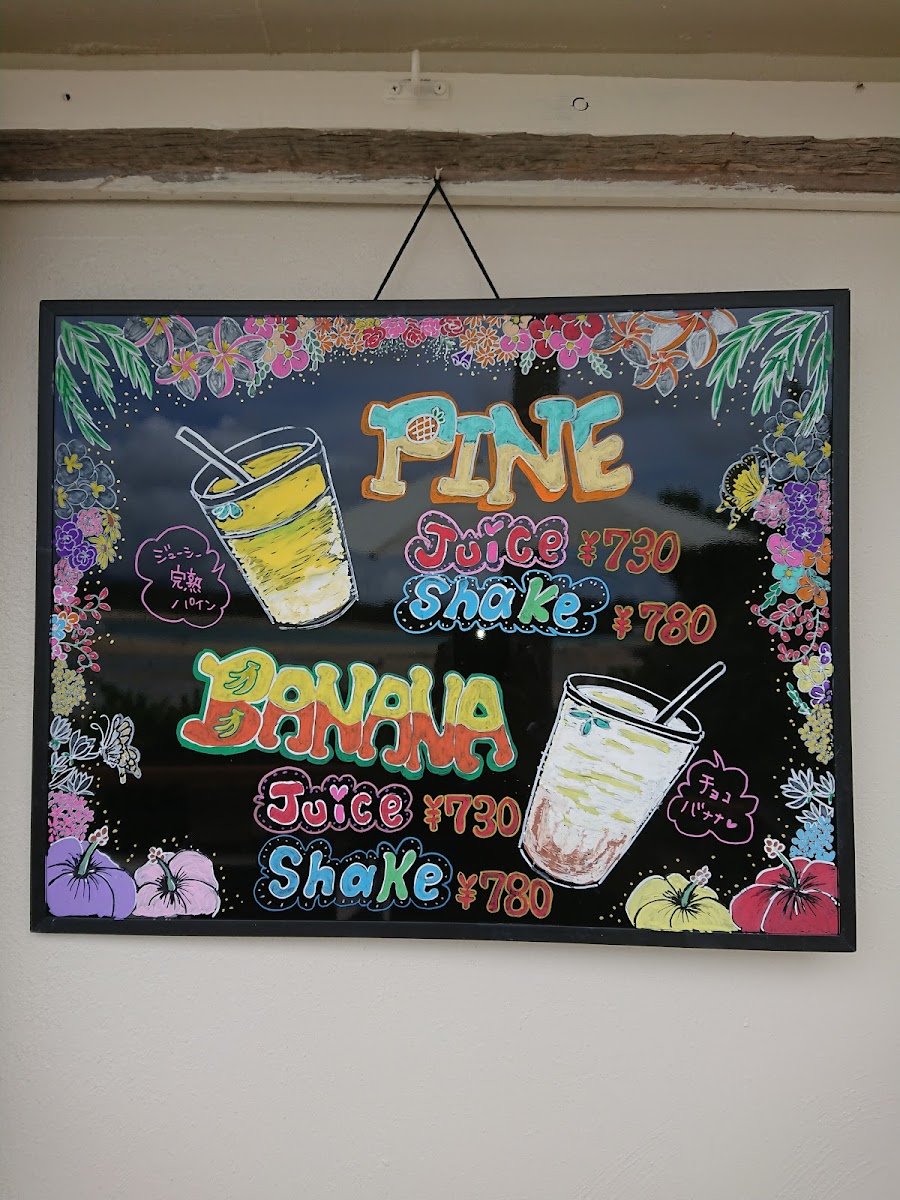 PINE
Juice ¥730
Shake ¥780
ジューシー
完熟
パイン
BANANA
Juice ¥730
Shake ¥780
チョコ
バナナ♥